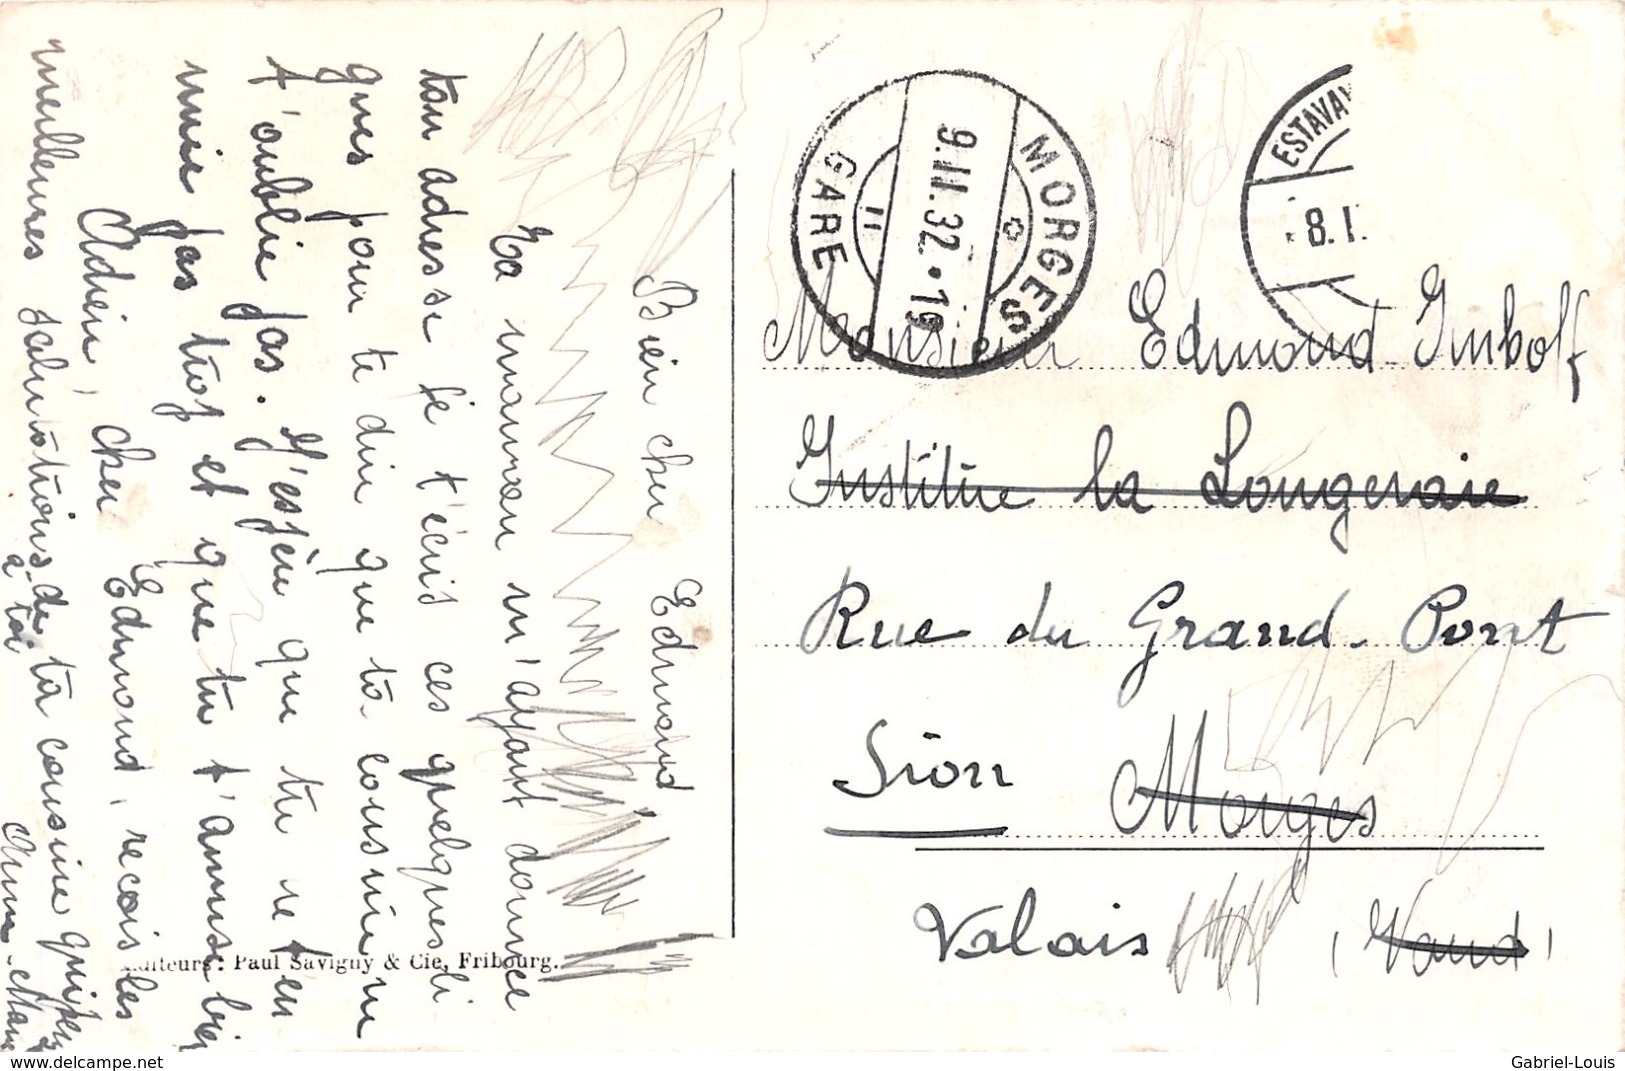 Bien cher Edmond,
Ta maman m'ayant donnée
ton adresse je t'écris ces quelques li
gnes pour te dire que ta cousine n
t'oublie pas. J'espère que tu ne t'en
nuie pas trop et que tu t'amuse bien
Adieu, cher Edmond, reçois les
meilleures salutations de ta cousine qui pense
à toi
Anna-Marie
Editeurs: Paul Savigny & Cie, Fribourg.
MORGES
GARE
II
9.III.32.19
ESTAVAY
8.I
Monsieur Edmond Imbolf
Institue la Longeraie
Rue du Grand-Pont
Sion Morges
Valais (Vaud)
delcampe.net
Gabriel-Louis